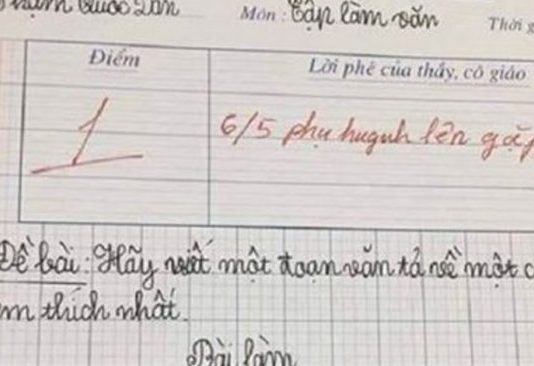 Quốc Dân Môn: Tập làm văn Thời
Điểm Lời phê của thầy, cô giáo
1 6/5 phụ huynh lên gặp
Đề bài: Hãy viết một đoạn văn tả về một
em thích nhất.
Bài làm